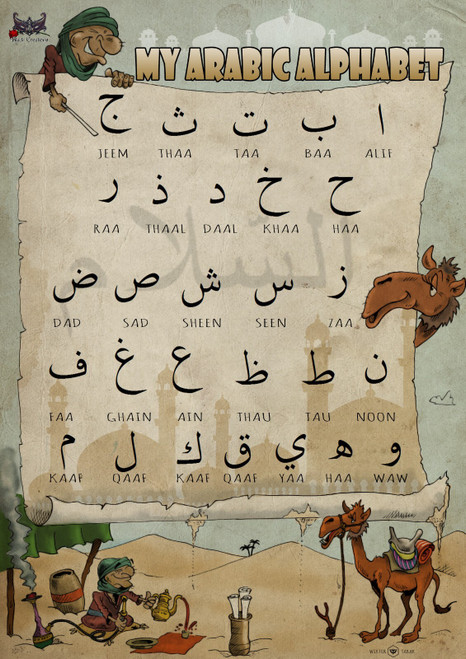 MY ARABIC ALPHABET
ا ب ت ث ج
JEEM THAA TAA BAA ALIF
ح خ د ذ ر
RAA THAAL DAAL KHAA HAA
السّلام
ز س ش ص ض
DAD SAD SHEEN SEEN ZAA
ن ط ظ ع غ ف
FAA GHAIN AIN THAU TAU NOON
و ه ي ق ك ل م
KAAF QAAF KAAF QAAF YAA HAA WAW